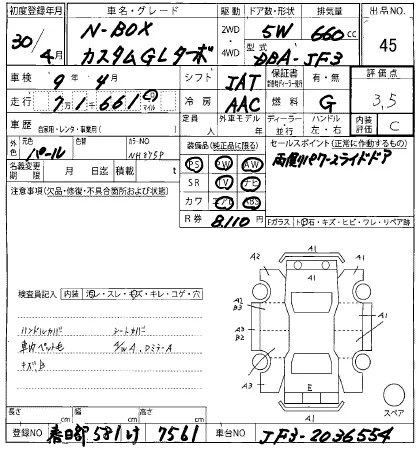 初度登録年月 車名・グレード 駆動 ドア数・形状 排気量 出品NO
30/4月 N-BOX カスタムGLターボ 2WD 4WD 5W 660cc 45
型式 DBA-JF3
車検 9年4月 シフト IAT 保証書 有・無 評価点
走行 7万1千661 マイル 冷房 AAC 燃料 G 3.5
車歴 自家用・レンタ・事業用( ) 定員 人 外車モデル 年 ディーラー・並行 ハンドル 左・右 内装評価 C
外色 元色 パール 色替 カラーNO NH875P
装備品(純正品に限る) セールスポイント(正常に作動するもの)
PS PW AW 両側パワースライドドア
名義変更期限 月 日迄 積載 t SR TV ナビ
注意事項(欠品・修復・不具合箇所および状態) カワ エアB ABS
R券 8.110円 Fガラス トビ石・キズ・ヒビ・ワレ・リペア跡
A1
A2 A1
検査員記入 内装 汚レ・スレ・キズ・キレ・コゲ・穴
A1 B3
ハンドルカバー シートカバー
A3 B2 A1
車内ペット毛
キズ
A3 A1
E
A1
スペア
長さ cm 幅 cm 高さ cm
登録NO 春日部 581 け 7561 車台NO JF3-2036554